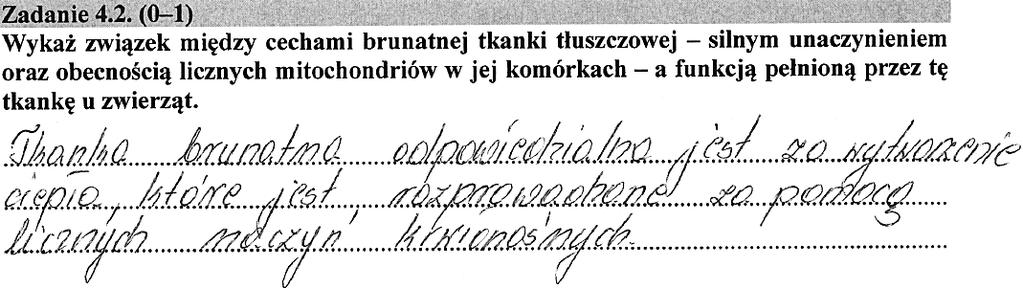 Zadanie 4.2. (0–1)
Wykaż związek między cechami brunatnej tkanki tłuszczowej – silnym unaczynieniem
oraz obecnością licznych mitochondriów w jej komórkach – a funkcją pełnioną przez tę
tkankę u zwierząt.
Tkanka brunatna odpowiedzialna jest za wytworzenie
ciepła, które jest rozprowadzone za pomocą
licznych naczyń krwionośnych.